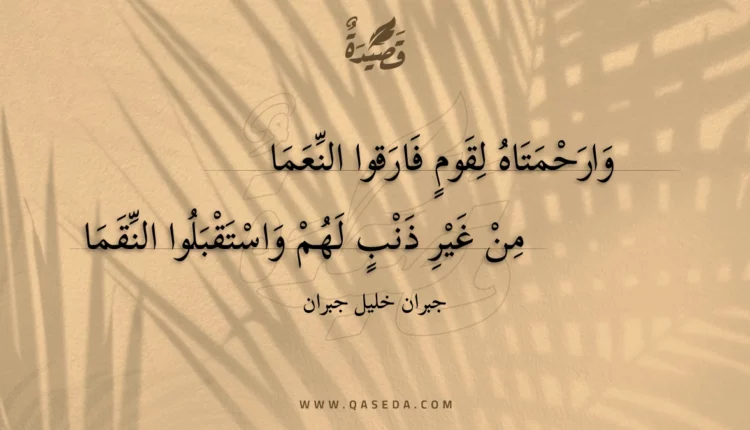 قَصِيْدَةٌ
وَارَحْمَتَاهُ لِقَومٍ فَارَقوا النِّعَمَا
مِنْ غَيْرِ ذَنْبٍ لَهُمْ وَاسْتَقْبَلُوا النِّقَمَا
جبران خليل جبران
WWW.QASEDA.COM